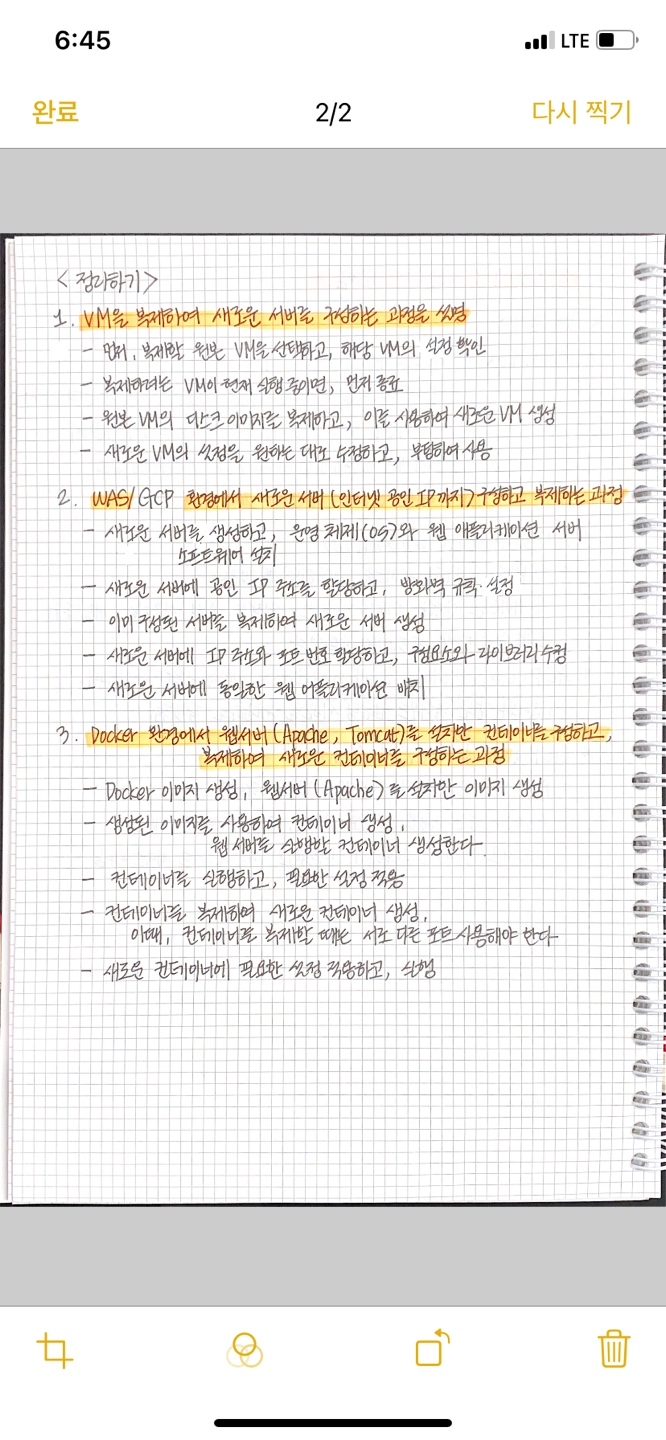 6:45
LTE
완료
2/2
다시 찍기
<정리하기>
1. VM을 복제하여 새로운 서버를 구성하는 과정을 설명
- 먼저, 복제할 원본 VM을 선택하고, 해당 VM의 설정 확인
- 복제하려는 VM이 현재 실행 중이면, 먼저 종료
- 원본 VM의 디스크 이미지를 복제하고, 이를 사용하여 새로운 VM 생성
- 새로운 VM의 설정을 원하는 대로 수정하고, 부팅하여 사용
2. WAS/GCP 환경에서 새로운 서버(인터넷 공인 IP까지) 구성하고 복제하는 과정
- 새로운 서버를 생성하고, 운영 체제(OS)와 웹 애플리케이션 서버
소프트웨어 설치
- 새로운 서버에 공인 IP 주소를 할당하고, 방화벽 규칙 설정
- 이미 구성된 서버를 복제하여 새로운 서버 생성
- 새로운 서버에 IP 주소와 포트 번호 할당하고, 구성요소와 라이브러리
- 새로운 서버에 동일한 웹 어플리케이션 배치
3. Docker 환경에서 웹서버(Apache, Tomcat)를 설치한 컨테이너를 구성하고,
복제하여 새로운 컨테이너를 구성하는 과정
- Docker 이미지 생성, 웹서버(Apache)를 설치한 이미지 생성
- 생성된 이미지를 사용하여 컨테이너 생성,
웹 서버를 실행할 컨테이너 생성한다.
- 컨테이너를 실행하고, 필요한 설정 적용
- 컨테이너를 복제하여 새로운 컨테이너 생성,
이때, 컨테이너를 복제할 때는 서로 다른 포트 사용해야 한다
- 새로운 컨테이너에 필요한 설정 적용하고, 실행